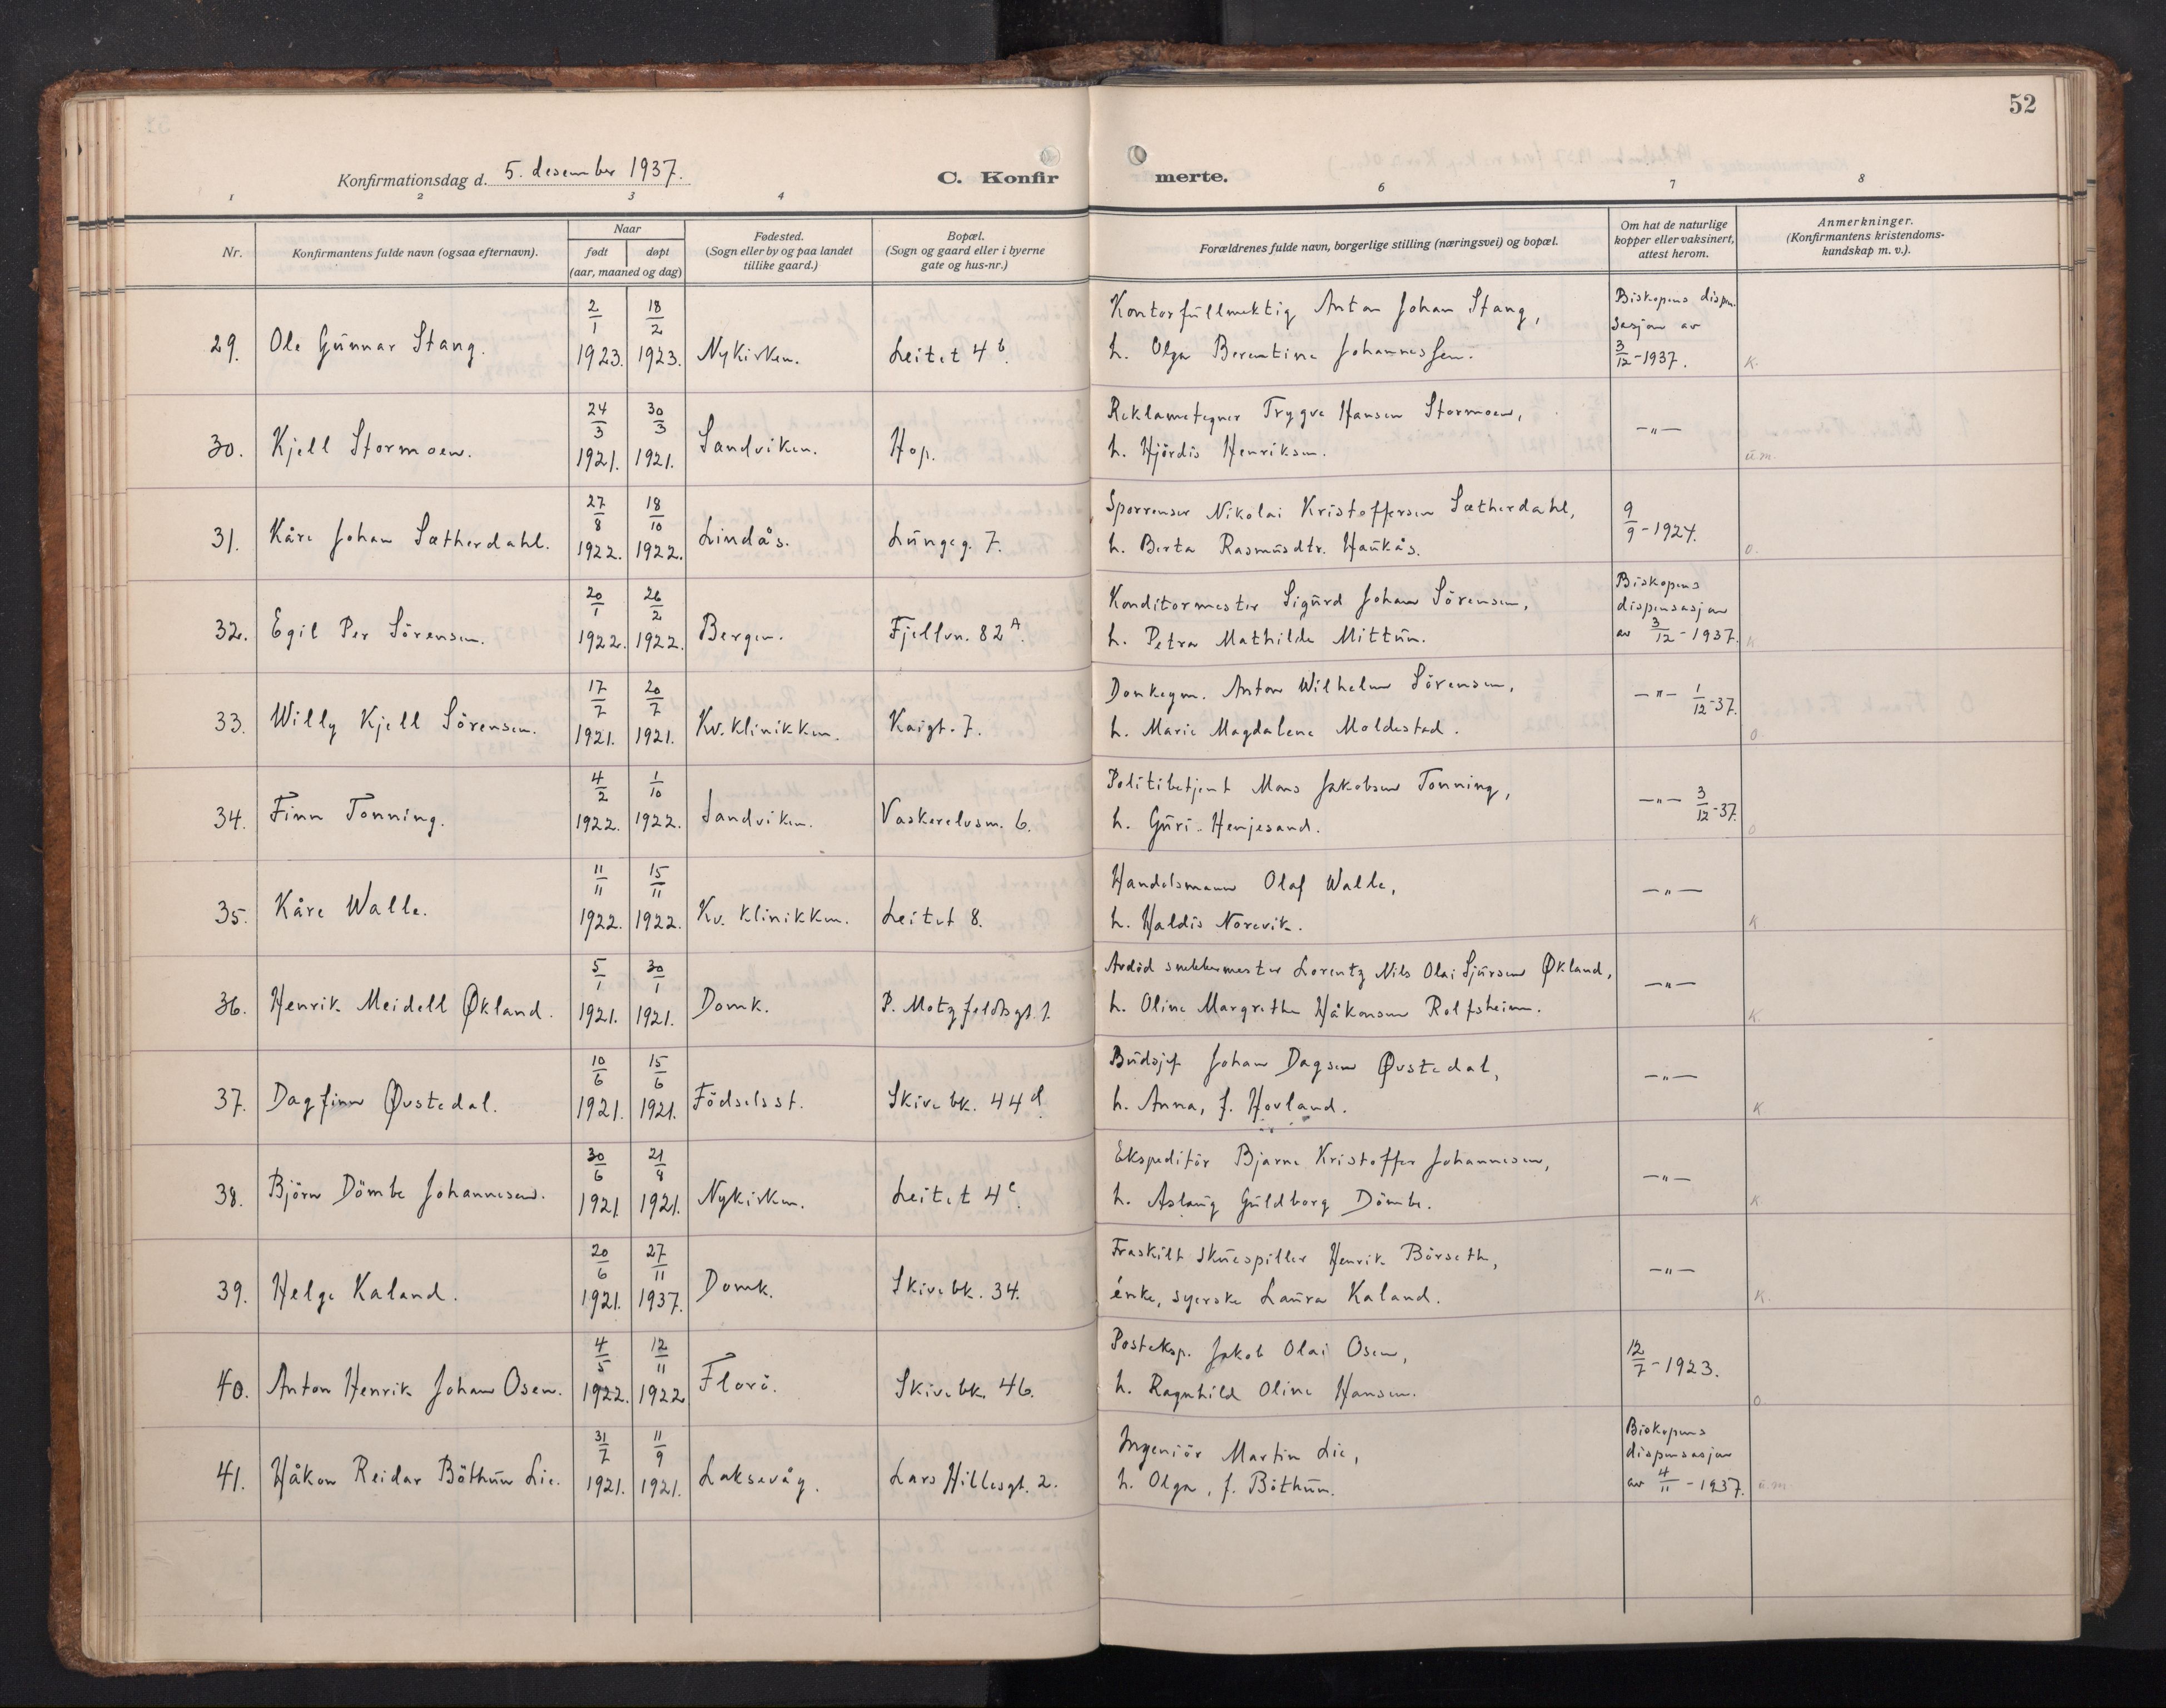 52
Konfirmationsdag d. 5. desember 1937.
C. Konfirmerte.
1 2 3 4 6 7 8
Nr.
Konfirmantens fulde navn (ogsaa efternavn).
Naar
født døpt
(aar, maaned og dag)
Fødested.
(Sogn eller by og paa landet
tillike gaard.)
Bopæl.
(Sogn og gaard eller i byerne
gate og hus-nr.)
Forældrenes fulde navn, borgerlige stilling (næringsvei) og bopæl.
Om hat de naturlige
kopper eller vaksinert,
attest herom.
Anmerkninger.
(Konfirmantens kristendoms-
kundskap m. v.).
29. Ole Gunnar Stang. 2/1 1923. 18/2 1923. Nykirken. Leitet 4 b.
Kontorfullmektig Anton Johan Stang,
h. Olga Berentine Johannessen.
Biskopens dispen-
sasjon av
3/12-1937. K.
30. Kjell Stormoen. 24/3 1921. 30/3 1921. Sandviken. Hop.
Reklametegner Trygve Hansen Stormoen,
h. Hjördis Henriksen.
—"— u.m.
31. Kåre Johan Sætherdahl. 27/8 1922. 18/10 1922. Lindås. Lungeg. 7.
Sporrenser Nikolai Kristoffersen Sætherdahl,
h. Berta Rasmusdtr. Haukås.
9/9-1924. O.
32. Egil Per Sörensen. 20/1 1922. 26/2 1922. Bergen. Fjellvn. 82 A.
Konditormester Sigurd Johan Sörensen,
h. Petra Mathilde Mittun.
Biskopens
dispensasjon
av 3/12-1937. K
33. Willy Kjell Sörensen. 17/7 1921. 20/7 1921. Kv. klinikken. Kaigt. 7.
Donkeym. Anton Wilhelm Sörensen,
h. Marie Magdalene Moldestad.
—"— 1/12-37. O
34. Finn Tonning. 4/2 1922. 1/10 1922. Sandviken. Vaskerelvsm. 6.
Politibetjent Mons Jakobsen Tonning,
h. Guri Henjesand.
—"— 3/12-37. O
35. Kåre Walle. 11/11 1922. 15/11 1922. Kv. klinikken. Leitet 8.
Handelsmann Olaf Walle,
h. Haldis Norevik.
—"— K
36. Henrik Meidell Økland. 5/1 1921. 30/1 1921. Domk. P. Motzfeldtsgt. 1.
Avdöd snekkermester Lorentz Nils Olai Sjursen Økland,
h. Oline Margrethe Håkonsen Rolfsheim.
—"— K.
37. Dagfinn Øvstedal. 10/6 1921. 15/6 1921. Födselsst. Skivebk. 44 d.
Budsjef Johan Dagsen Øvstedal,
h. Anna, f. Hovland.
—"— K
38. Björn Dömbe Johannesen. 30/6 1921. 21/8 1921. Nykirken. Leitet 4 c.
Ekspeditör Bjarne Kristoffer Johannesen,
h. Aslaug Guldborg Dömbe.
—"— K
39. Helge Kaland. 20/6 1921. 27/11 1937. Domk. Skivebk. 34.
Fraskilt skuespiller Henrik Börseth,
énke, syerske Laura Kaland.
—"— K.
40. Anton Henrik Johan Osen. 4/5 1922. 12/11 1922 Florö. Skivebk. 46.
Posteksp. Jakob Olai Osen,
h. Ragnhild Oline Hansen.
12/7-1923. O
41. Håkon Reidar Böthun Lie. 31/7 1921. 11/9 1921. Laksevåg. Lars Hillesgt. 2.
Ingeniör Martin Lie,
h. Olga, f. Böthun.
Biskopens
dispensasjon
av 4/11-1937. u.m.